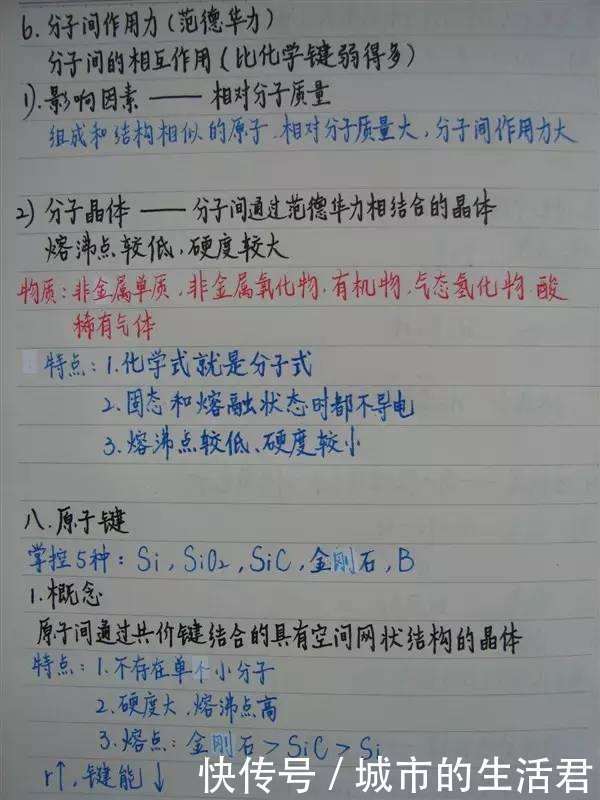 6. 分子间作用力(范德华力)
分子间的相互作用(比化学键弱得多)
1). 影响因素 —— 相对分子质量
组成和结构相似的原子,相对分子质量大,分子间作用力大
2) 分子晶体 —— 分子间通过范德华力相结合的晶体
熔沸点较低,硬度较大
物质:非金属单质,非金属氧化物,有机物,气态氢化物,酸
稀有气体
特点:1.化学式就是分子式
2.固态和熔融状态时都不导电
3.熔沸点较低、硬度较小
八.原子键
掌控5种:Si,SiO2,SiC,金刚石,B
1.概念
原子间通过共价键结合的具有空间网状结构的晶体
特点:1.不存在单个小分子
2.硬度大,熔沸点高
3.熔点:金刚石>SiC>Si
r↑,键能↓
快传号/城市的生活君